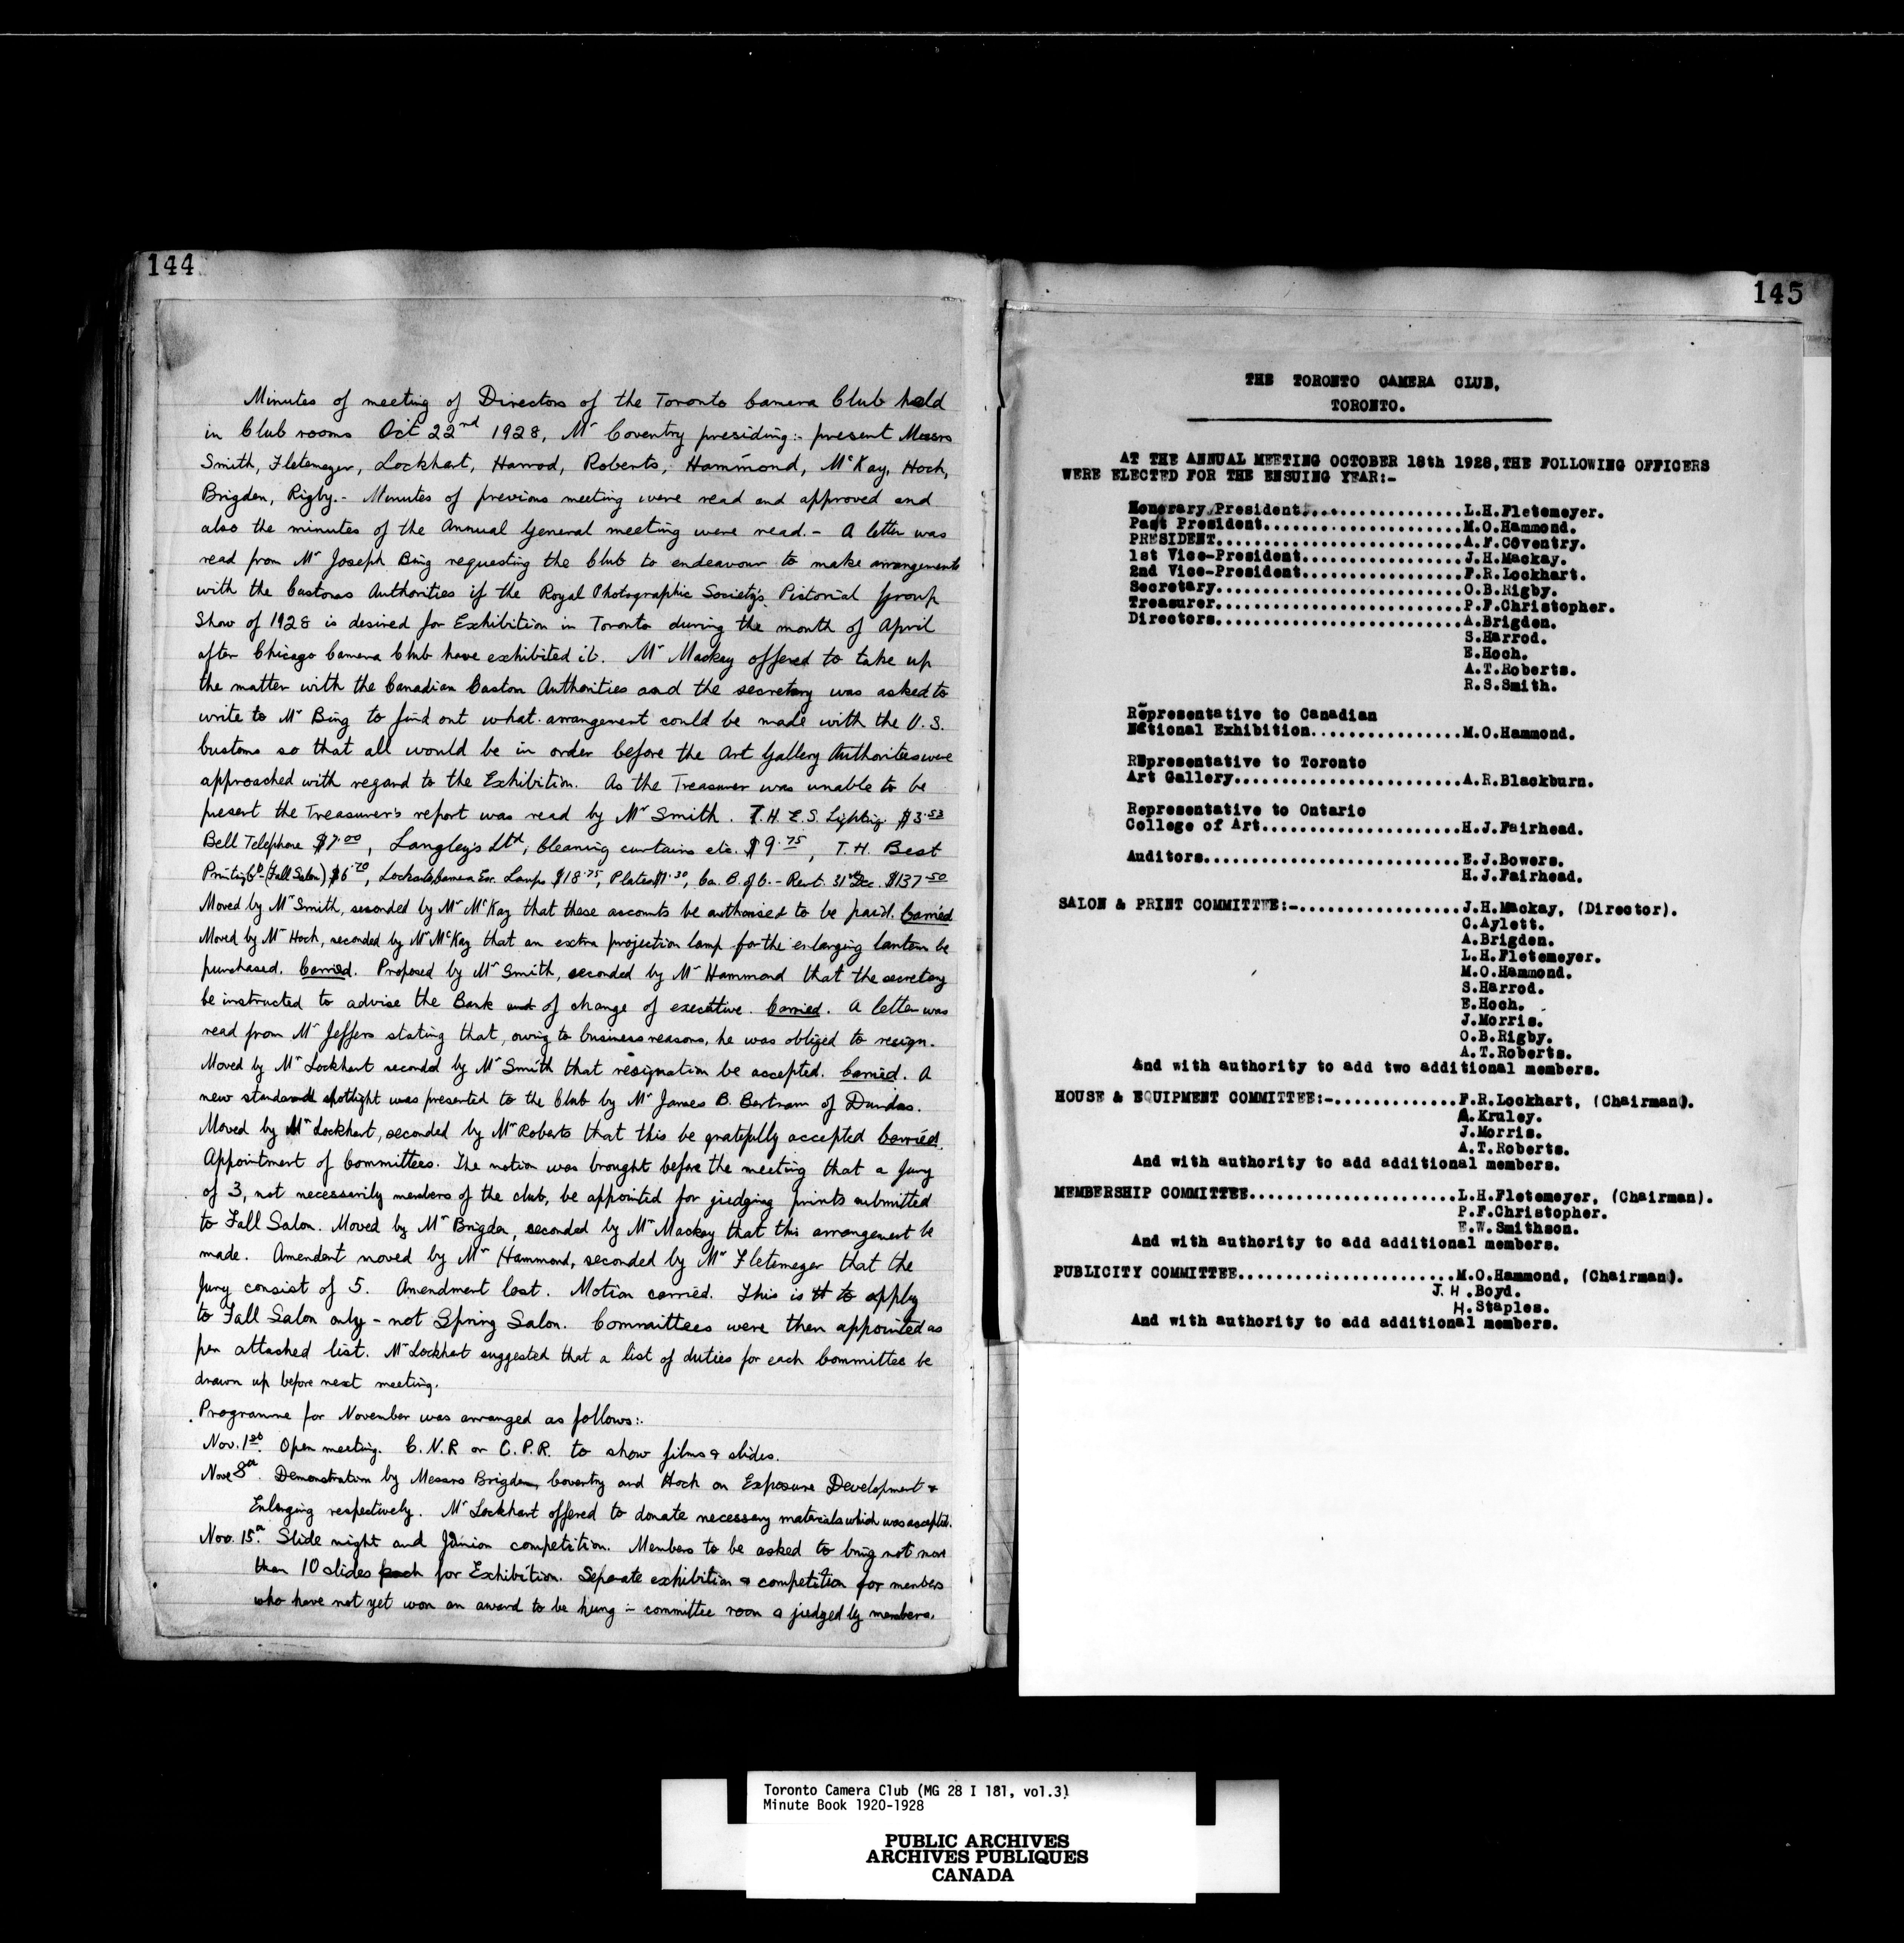 144
Minutes of meeting of Directors of the Toronto Camera Club held
in Club rooms Oct 22nd 1928, Mr Coventry presiding:- present Messrs
Smith, Fletemeyer, Lockhart, Harrod, Roberts, Hammond, McKay, Hoch,
Brigden, Rigby.- Minutes of previous meeting were read and approved and
also the minutes of the Annual General meeting were read.- A letter was
read from Mr Joseph Bing requesting the Club to endeavour to make arrangements
with the Customs Authorities if the Royal Photographic Society's Pictorial Group
Show of 1928 is desired for Exhibition in Toronto during the month of April
after Chicago Camera Club have exhibited it. Mr Mackay offered to take up
the matter with the Canadian Custom Authorities and the secretary was asked to
write to Mr Bing to find out what arrangement could be made with the U.S.
customs so that all would be in order before the Art Gallery Authorities were
approached with regard to the Exhibition. As the Treasurer was unable to be
present the Treasurer's report was read by Mr Smith. T.H.E.S. Lighting $3.53
Bell Telephone $7.00, Langley's Ltd, Cleaning curtains etc. $9.75, T.H. Best
Printing Co (Fall Salon) $6.70, Lockarts Camera Ex. Lamps $18.75, Plates $1.30, Ca. B. of C. - Rent 31st Dec. $137.50
Moved by Mr Smith, seconded by Mr McKay that these accounts be authorised to be paid. Carried
Moved by Mr Hoch, seconded by Mr McKay that an extra projection lamp for the enlarging lantern be
purchased. Carried. Proposed by Mr Smith, seconded by Mr Hammond that the secretary
be instructed to advise the Bank and of change of executive. Carried. A letter was
read from Mr Jeffers stating that, owing to business reasons, he was obliged to resign.
Moved by Mr Lockhart seconded by Mr Smith that resignation be accepted. Carried. A
new standard spotlight was presented to the Club by Mr James B. Bertram of Dundas.
Moved by Mr Lockhart, seconded by Mr Roberts that this be gratefully accepted Carried.
Appointment of Committees. The motion was brought before the meeting that a Jury
of 3, not necessarily members of the club, be appointed for judging prints submitted
to Fall Salon. Moved by Mr Brigden, seconded by Mr Mackay that this arrangement be
made. Amendent moved by Mr Hammond, seconded by Mr Fletemeyer that the
Jury consist of 5. Amendment lost. Motion carried. This is to apply
to Fall Salon only - not Spring Salon. Committees were then appointed as
per attached list. Mr Lockhart suggested that a list of duties for each Committee be
drawn up before next meeting.
Programme for November was arranged as follows:.
Nov. 1st. Open meeting. C.N.R or C.P.R. to show films & slides.
Nov 8th. Demonstration by Messrs Brigden, Coventry and Hoch on Exposure Development &
Enlarging respectively. Mr Lockhart offered to donate necessary materials which was accepted.
Nov. 15th. Slide night and Junior competition. Members to be asked to bring not more
than 10 slides each for Exhibition. Separate exhibition & competition for members
who have not yet won an award to be hung in committee room & judged by members.
145
THE TORONTO CAMERA CLUB,
TORONTO.
AT THE ANNUAL MEETING OCTOBER 18th 1928,THE FOLLOWING OFFICERS
WERE ELECTED FOR THE ENSUING YEAR:-
Honorary President...................L.H.Fletemeyer.
Past President........................M.O.Hammond.
PRESIDENT..............................A.F.Coventry.
1st Vice-President...................J.H.Mackay.
2nd Vice-President...................F.R.Lockhart.
Secretary..............................O.B.Rigby.
Treasurer..............................P.F.Christopher.
Directors..............................A.Brigden.
S.Harrod.
E.Hoch.
A.T.Roberts.
R.S.Smith.
Representative to Canadian
National Exhibition..................M.O.Hammond.
Representative to Toronto
Art Gallery............................A.R.Blackburn.
Representative to Ontario
College of Art........................H.J.Fairhead.
Auditors...............................E.J.Bowers.
H.J.Fairhead.
SALON & PRINT COMMITTEE:-....................J.H.Mackay, (Director).
C.Aylett.
A.Brigden.
L.H.Fletemeyer.
M.O.Hammond.
S.Harrod.
E.Hoch.
J.Morris.
O.B.Rigby.
A.T.Roberts.
And with authority to add two additional members.
HOUSE & EQUIPMENT COMMITTEE:-...............F.R.Lockhart, (Chairman).
A.Kruley.
J.Morris.
A.T.Roberts.
And with authority to add additional members.
MEMBERSHIP COMMITTEE.........................L.H.Fletemeyer, (Chairman).
P.F.Christopher.
E.W.Smithson.
And with authority to add additional members.
PUBLICITY COMMITTEE..........................M.O.Hammond, (Chairman).
J.H.Boyd.
H.Staples.
And with authority to add additional members.
Toronto Camera Club (MG 28 I 181, vol.3)
Minute Book 1920-1928
PUBLIC ARCHIVES
ARCHIVES PUBLIQUES
CANADA